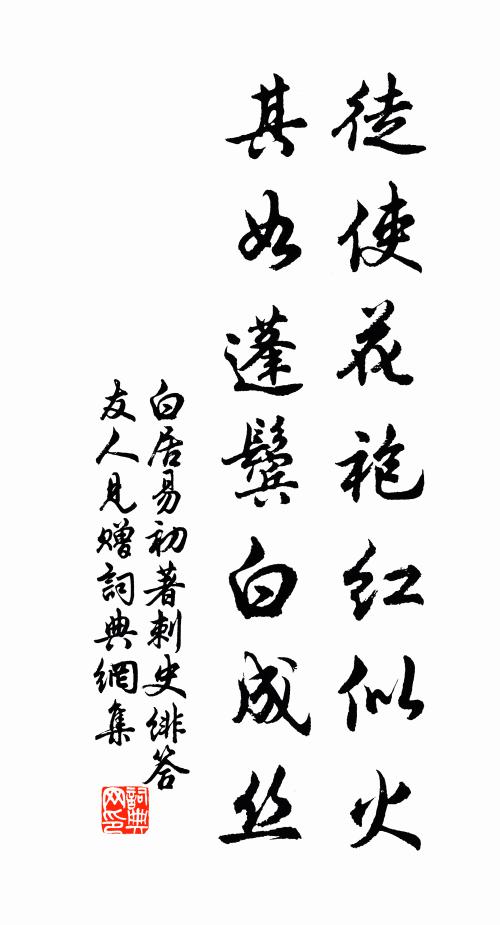 徒使花袍红似火
其如蓬鬓白成丝
白居易初著刺史绯答
友人见赠詞典網集
詞典网印